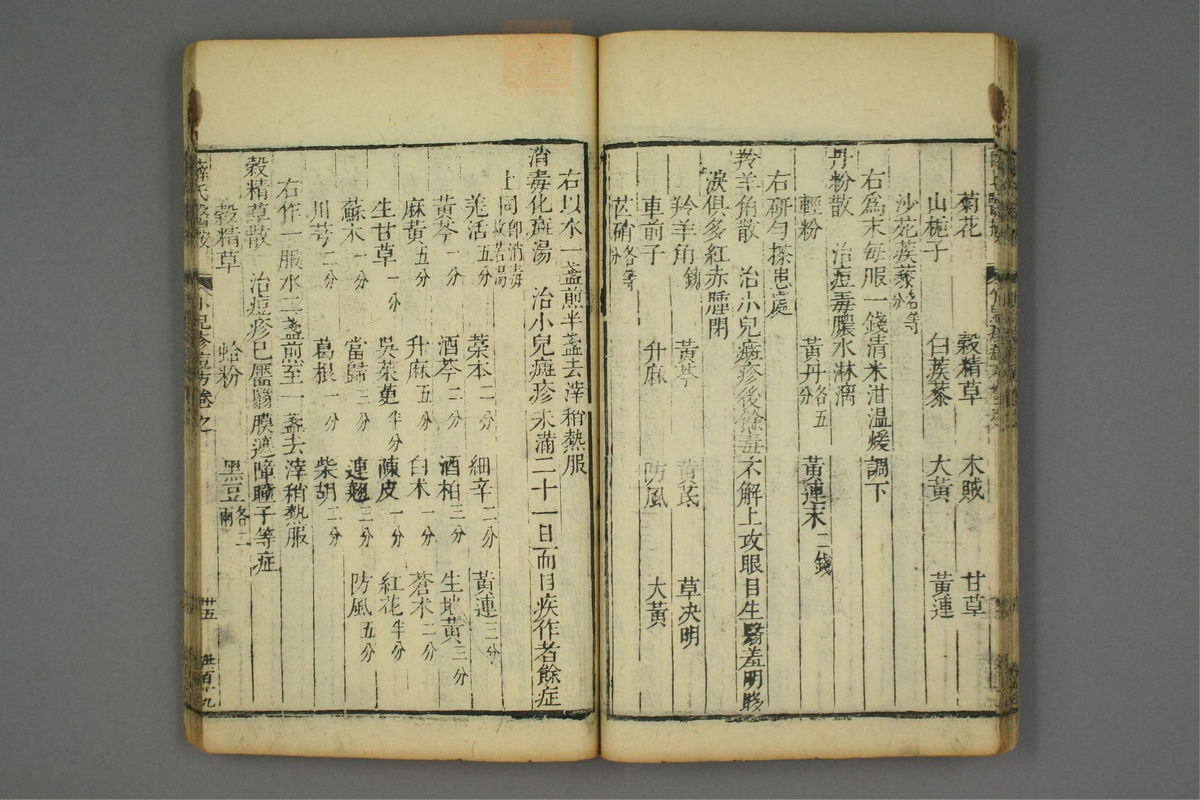 菊花 穀精草 木賊 甘草
山梔子 白蒺藜 大黃 黃連
沙苑蒺藜各等分
右爲末每服一錢清米泔溫煖調下
丹粉散 治痘毒膿水淋漓
輕粉 黃丹各五分 黃連末二錢
右研勻搽患處
羚羊角散 治小兒癍疹後餘毒不解上攻眼目生翳羞明眵
淚俱多紅赤腫閉
羚羊角鎊 黃芩 黃芪 草決明
車前子 升麻 防風 大黃
芒硝各等分
右以水一盞煎半盞去滓稍熱服
消毒化斑湯 治小兒癍疹未滿二十一日而目疾作者餘症
上同即消毒救苦湯
羗活五分 藁本二分 細辛二分 黃連三分
黃芩一分 酒芩二分 酒柏三分 生地黃三分
麻黃五分 升麻五分 白术一分 蒼术二分
生甘草一分 吳茱萸半分 陳皮一分 紅花半分
蘇木一分 當歸三分 連翹三分 防風五分
川芎二分 葛根一分 柴胡二分
右作一服水二盞煎至一盞去滓稍熱服
穀精草散 治痘疹已靨翳膜遮障瞳子等症
穀精草 蛤粉 黑豆各二兩
薛氏醫按 小兒痘疹方卷之 卅五